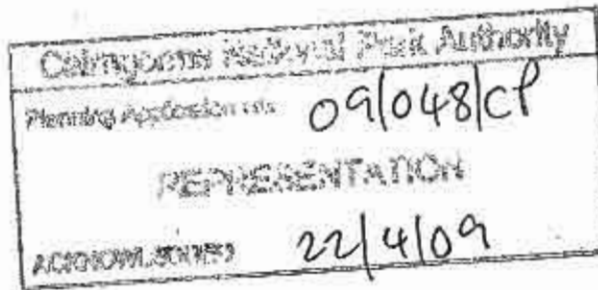 Cairngorms National Park Authority
Planning Application no. 09/048/CP
REPRESENTATION
ACKNOWLEDGED 22/4/09